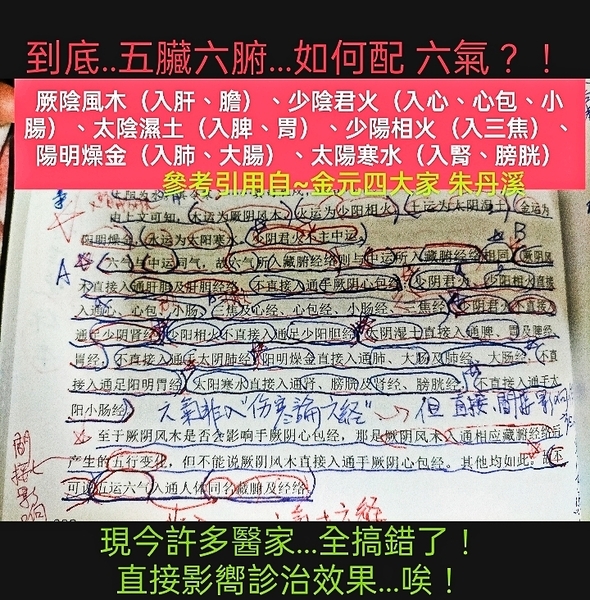 到底..五臟六腑...如何配 六氣？！
厥陰風木（入肝、膽）、少陰君火（入心、心包、小
腸）、太陰濕土（入脾、胃）、少陽相火（入三焦）、
陽明燥金（入肺、大腸）、太陽寒水（入腎、膀胱）
參考引用自~金元四大家 朱丹溪
由上文可知，木运为厥阴风木，火运为少阳相火，土运为太阴湿土，金运为
阳明燥金，水运为太阳寒水，少阴君火不主中运。
B
A
六气与中运同气，故六气所入藏腑经络则与中运所入藏腑经络相同。厥阴风
木直接入通肝胆及肝胆经络，不直接入通手厥阴心包经。少阴君火、少阳相火直接
入通心、心包、小肠、三焦及心经、心包经、小肠经、三焦经，少阴君火不直接入
通足少阴肾经，少阳相火不直接入通足少阳胆经。太阴湿土直接入通脾、胃及脾经、
胃经，不直接入通手太阴肺经。阳明燥金直接入通肺、大肠及肺经、大肠经，不直
接入通足阳明胃经。太阳寒水直接入通肾、膀胱及肾经、膀胱经，不直接入通手太
阳小肠经。
六气非入"伤寒論六経" → 但直接、間接影响
至于厥阴风木是否会影响手厥阴心包经，那是厥阴风木入通相应藏腑经络后
产生的五行变化，但不能说厥阴风木直接入通手厥阴心包经。其他均如此，故不
可说五运六气入通人体同名藏腑及经络。
間接影响
現今許多醫家...全搞錯了！
直接影嚮診治效果...唉！